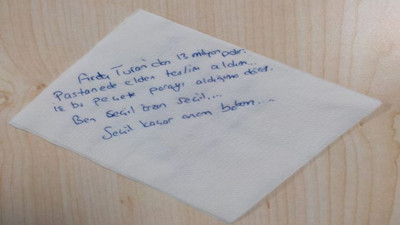 Arda Turan'dan 13 milyon doları
Pastanede elden teslim aldım...
iş bu peçete parayı aldığıma dairdir.
Ben Seçil Erzan Seçil...
Seçil kaçar anam babam...